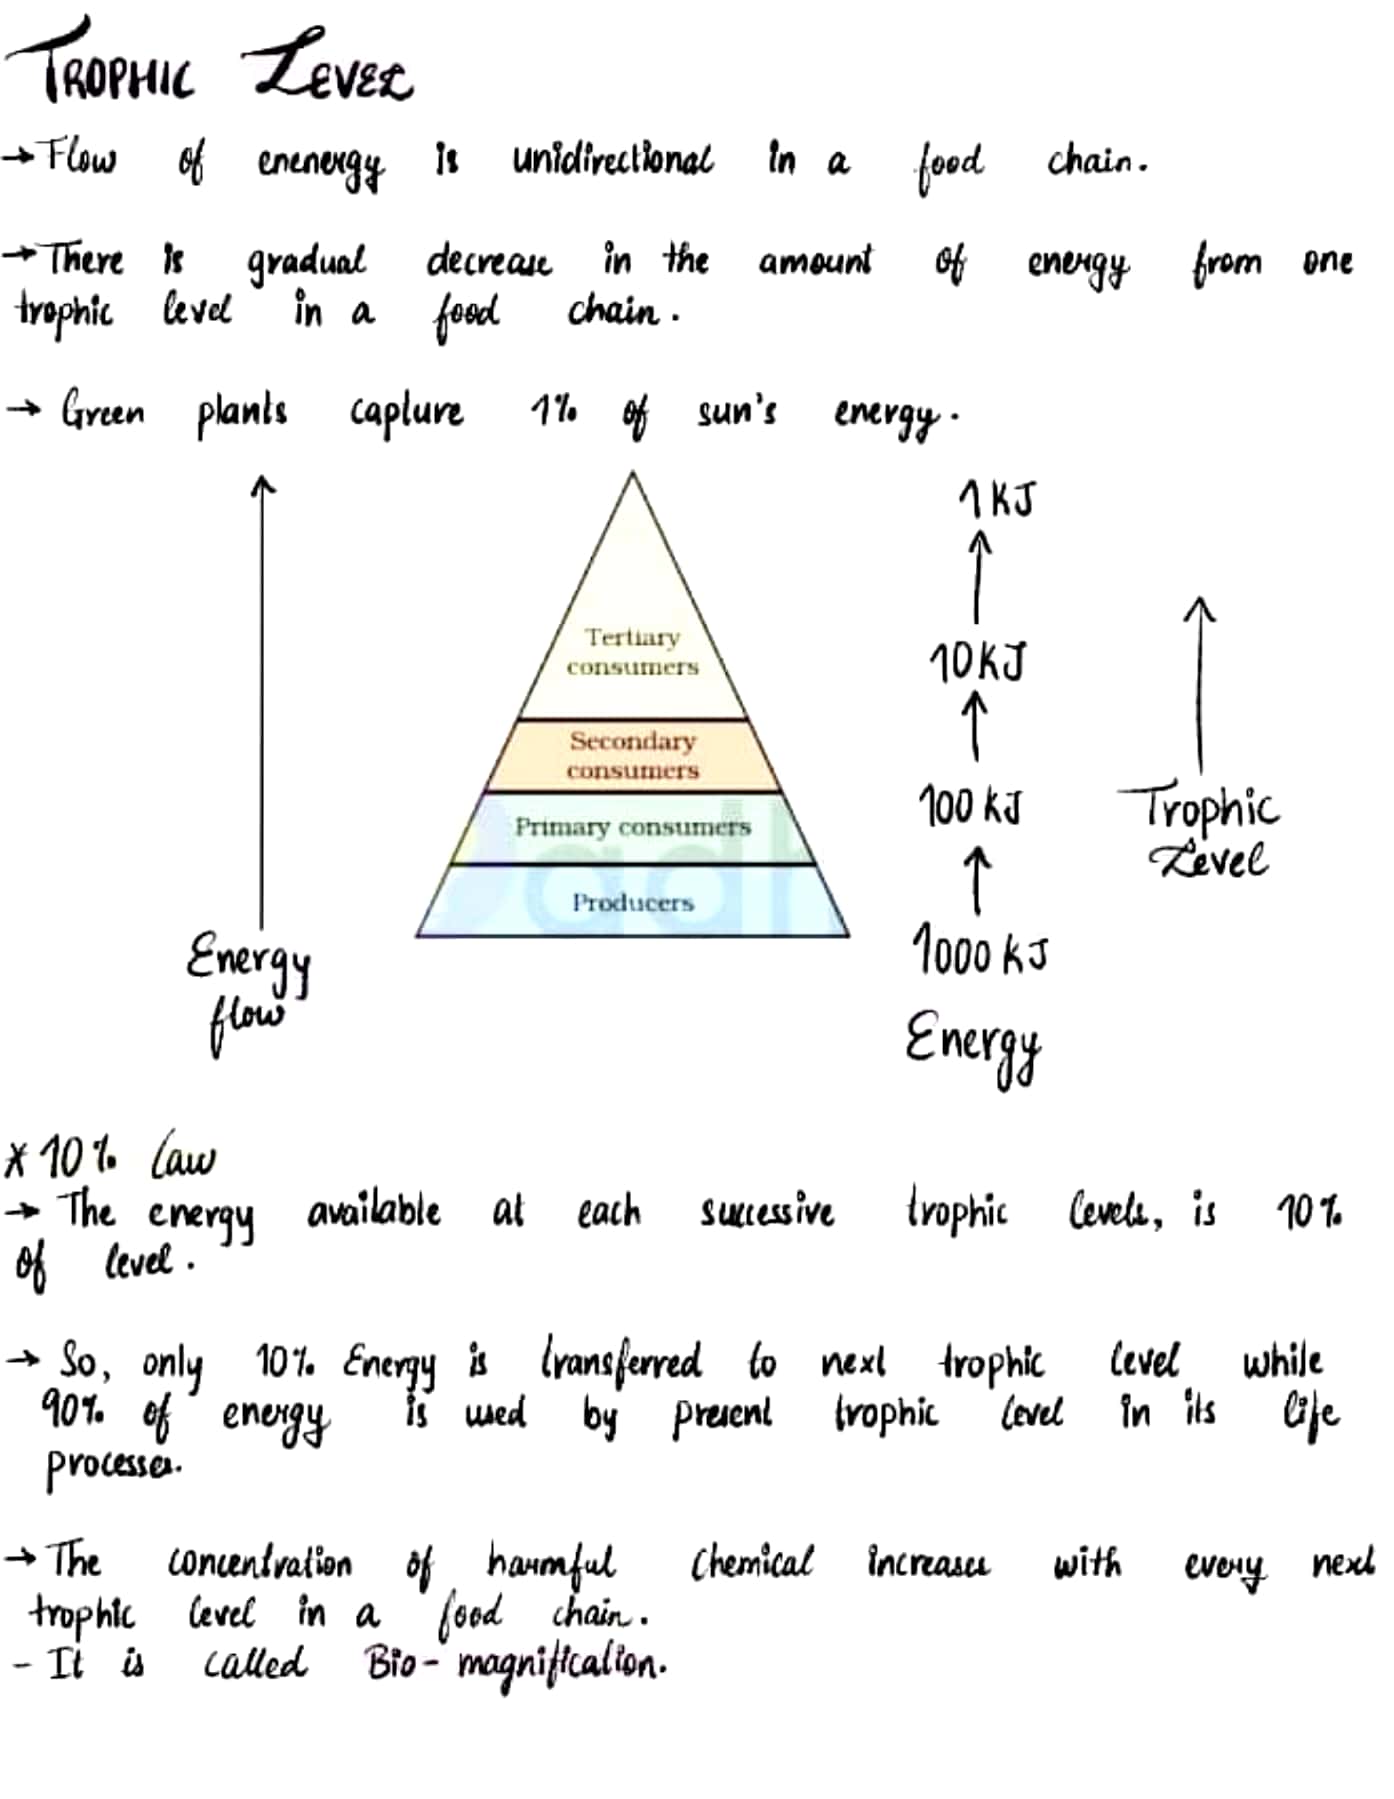 TROPHIC LEVEL
→ Flow of enenergy is unidirectional in a food chain.
→ There is gradual decrease in the amount of energy from one
trophic level in a food chain.
→ Green plants capture 1% of sun's energy.
1 KJ
10 KJ
Tertiary
consumers
Secondary
consumers
100 KJ
Primary consumers
Trophic
Level
Producers
1000 KJ
Energy
flow
Energy
* 10% law
→ The energy available at each successive trophic levels, is 10%
of level.
→ So, only 10% Energy is transferred to next trophic level while
90% of energy is used by present trophic level in its life
processes.
→ The concentration of harmful chemical increases with every next
trophic level in a food chain.
- It is called Bio-magnification.